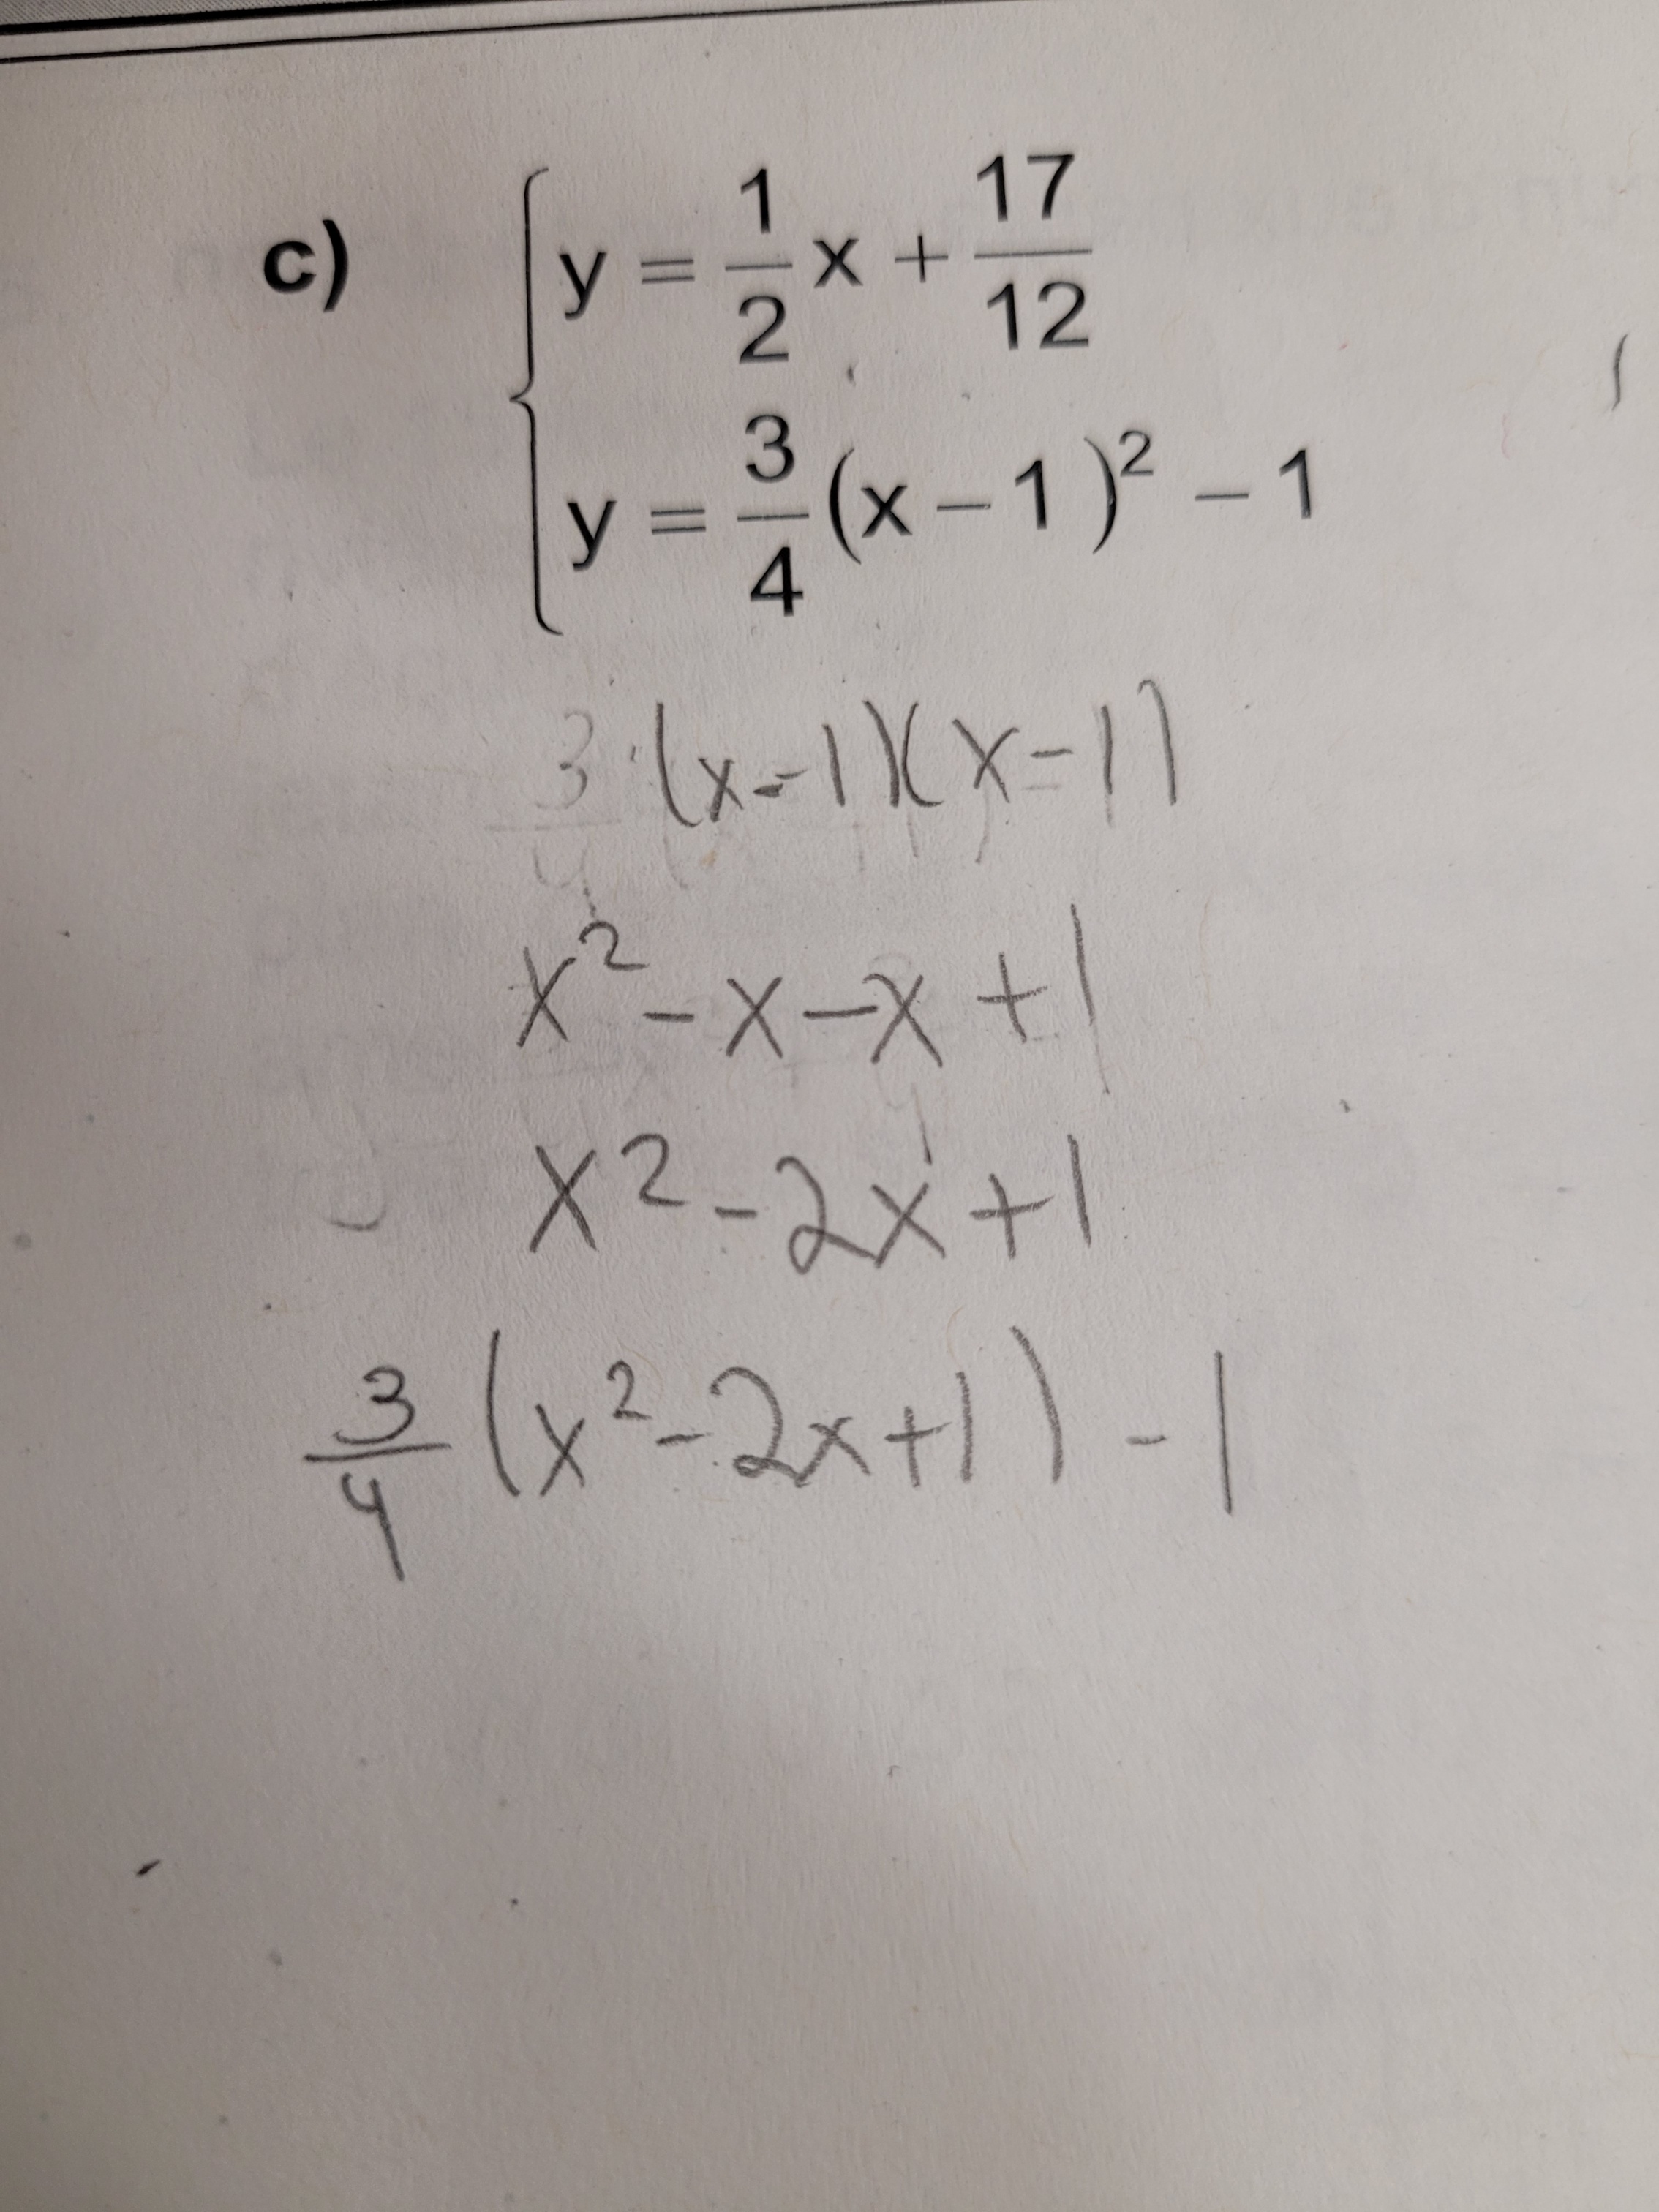 c) { y = 1/2 x + 17/12
y = 3/4 (x − 1)² − 1
3 (x-1)(x-1)
x² - x - x + 1
x² - 2x + 1
3/4 (x² - 2x + 1) - 1